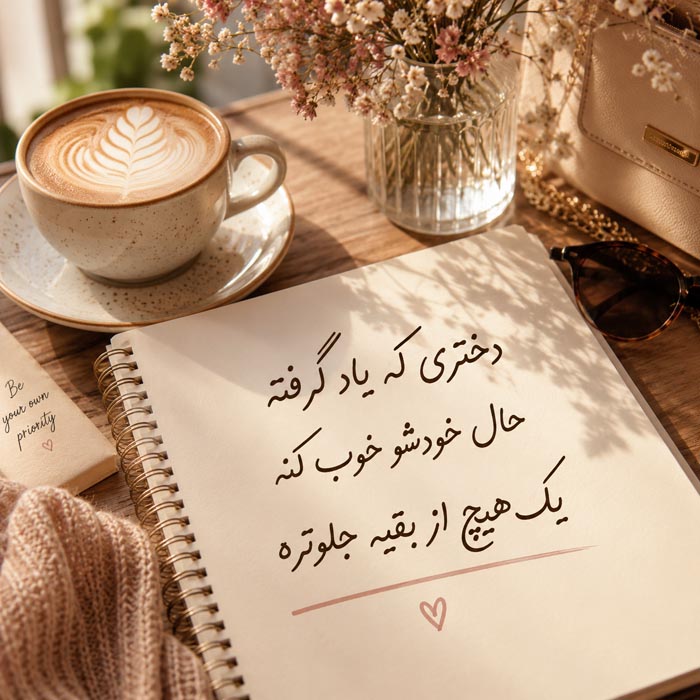 دختری که یاد گرفته
حال خودشو خوب کنه
یک هیچ از بقیه جلوتره
Be
your own
priority